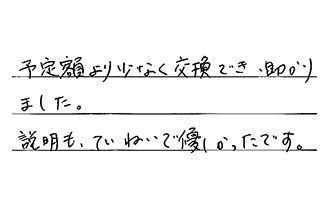 予定額より少なく交換でき、助かり
ました。
説明も、ていねいで優しかったです。